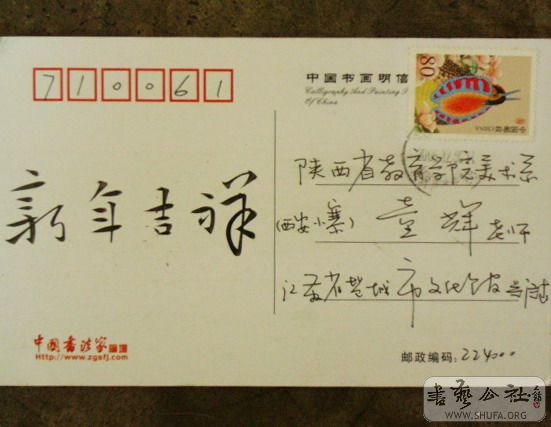 710061
中国书画明信
Calligraphy And Painting P
Of China
80
CHINA
陕西省教育学院美术系
(西安小寨) 童辉老师
江苏省盐城市文化馆
新年吉祥
中国书法家论坛
Http://www.zgsfj.com
邮政编码: 224000
書藝公社
WWW.SHUFA.ORG